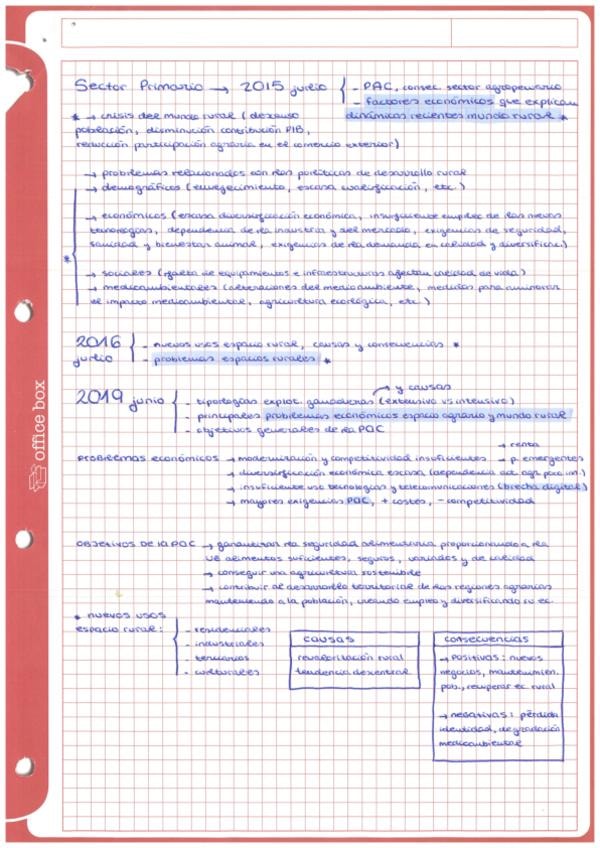 Sector Primario → 2015 junio { - PAC, consec. sector agropecuario
- factores económicos que explican
* → crisis del mundo rural (descenso dinámicas recientes mundo rural *
población, disminución contribución PIB,
reducción participación agraria en el comercio exterior)
→ problemas relacionados con las políticas de desarrollo rural
→ demográficos (envejecimiento, escasa cualificación, etc.)
→ económicos (escasa diversificación económica, insuficiente empleo de las nuevas
tecnologías, dependencia de la industria y del mercado, exigencias de seguridad,
sanidad y bienestar animal, exigencias de la demanda en calidad y diversificac.)
*
→ sociales (falta de equipamientos e infraestructuras afectan calidad de vida)
→ medioambientales (alteraciones del medioambiente, medidas para aminorar
el impacto medioambiental, agricultura ecológica, etc.)
2016 { - nuevos usos espacio rural, causas y consecuencias *
junio - problemas espacios rurales *
→ y causas
2019 junio { - tipologías explot. ganaderas (extensivo vs intensivo)
- principales problemas económicos espacio agrario y mundo rural
- objetivos generales de la PAC
→ renta
PROBLEMAS ECONÓMICOS → modernización y competitividad insuficientes → p. emergentes
→ diversificación económica escasa (dependencia act. agr. poco int.)
→ insuficiente uso tecnologías y telecomunicaciones (brecha digital)
→ mayores exigencias PAC, + costes, - competitividad
OBJETIVOS DE la PAC → garantizar la seguridad alimentaria proporcionando a la
UE alimentos suficientes, seguros, variados y de calidad
→ conseguir una agricultura sostenible
→ contribuir al desarrollo territorial de las regiones agrarias
manteniendo a la población, creando empleo y diversificando su ec.
* nuevos usos
espacio rural: { - residenciales
- industriales
- terciarios
- culturales
causas
revalorización rural
tendencia descentral.
consecuencias
→ positivas: nuevos
negocios, mantenimien.
pob., recuperar ec. rural
→ negativas: pérdida
identidad, degradación
medioambiental
office box